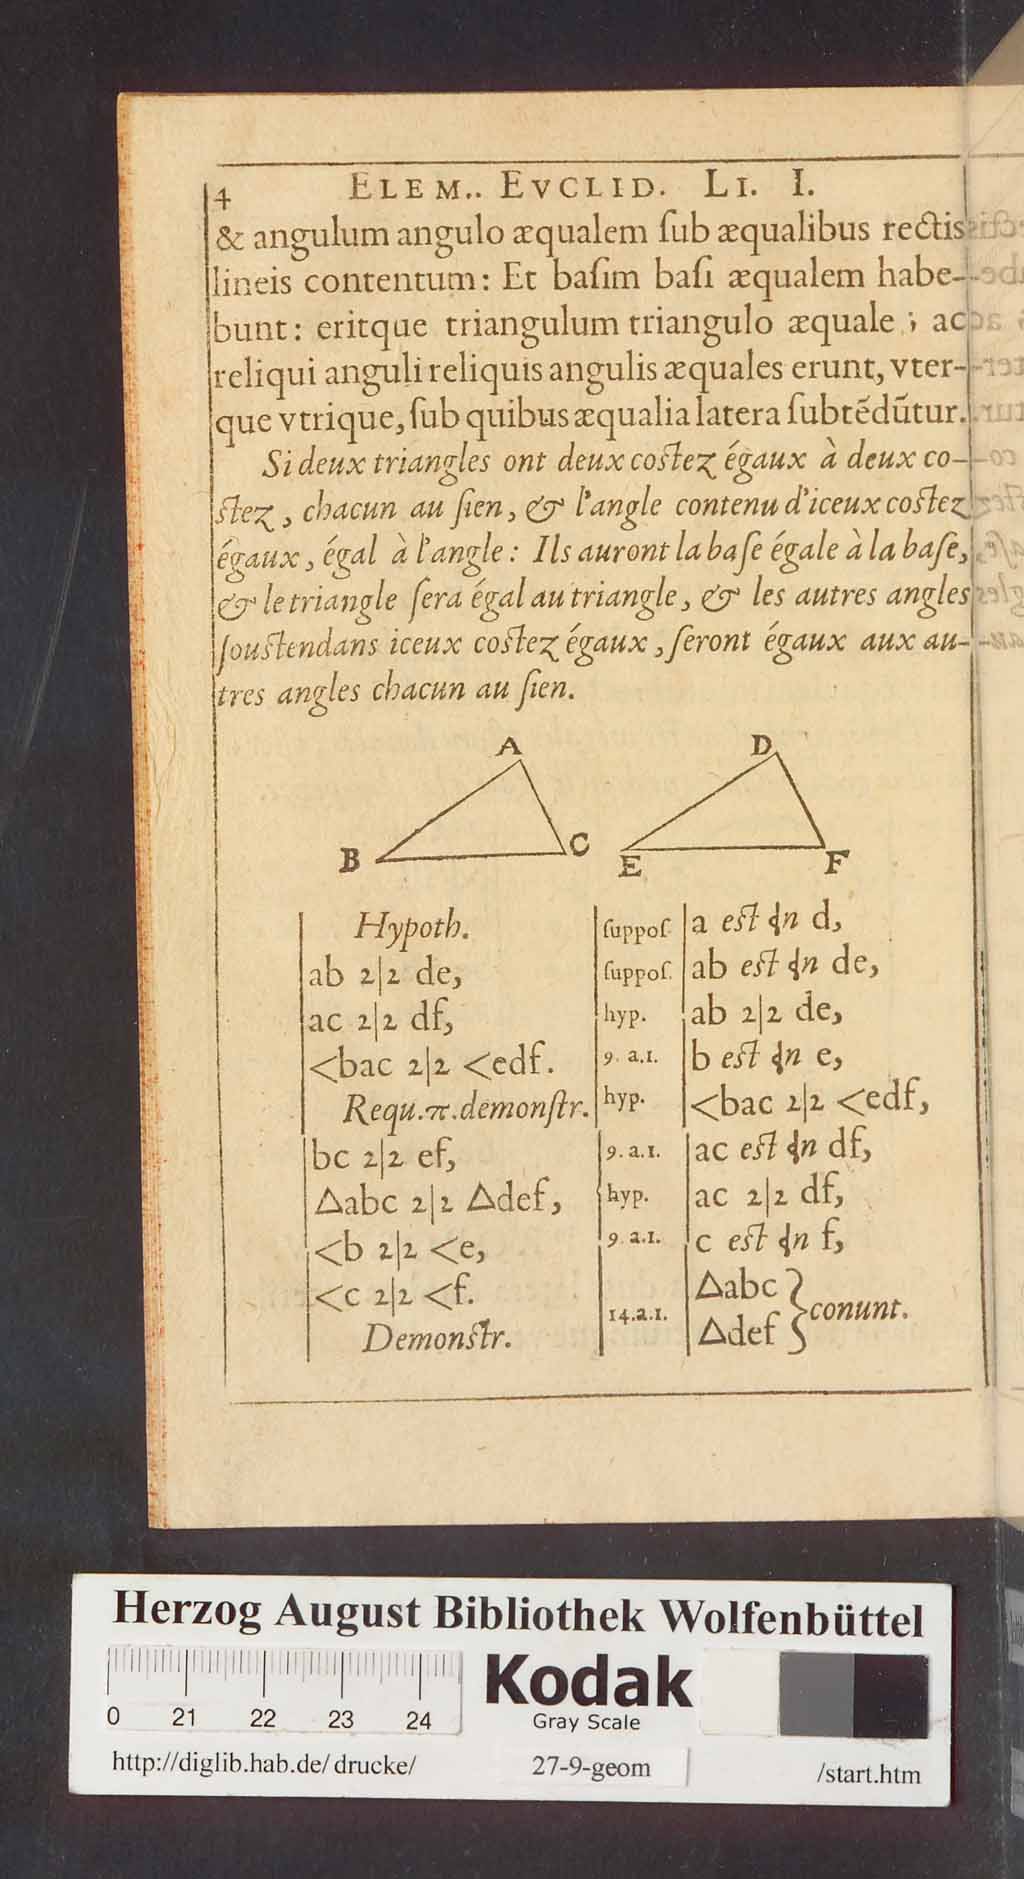 4 ELEM.. EVCLID. LI. I.
& angulum angulo æqualem ſub æqualibus rectis
lineis contentum: Et baſim baſi æqualem habe-
bunt: eritque triangulum triangulo æquale; ac
reliqui anguli reliquis angulis æquales erunt, vter-
que vtrique, ſub quibus æqualia latera ſubtēdūtur.
Si deux triangles ont deux costez égaux à deux co-
stez, chacun au ſien, & l'angle contenu d'iceux costez
égaux, égal à l'angle: Ils auront la baſe égale à la baſe,
& le triangle ſera égal au triangle, & les autres angles
ſoustendans iceux costez égaux, ſeront égaux aux au-
tres angles chacun au ſien.
A
B
C
D
E
F
Hypoth.
ab 2|2 de,
ac 2|2 df,
<bac 2|2 <edf.
Requ.π.demonſtr.
bc 2|2 ef,
△abc 2|2 △def,
<b 2|2 <e,
<c 2|2 <f.
Demonstr.
ſuppoſ. a est n d,
ſuppoſ. ab est n de,
hyp. ab 2|2 de,
9. a.1. b est n e,
hyp. <bac 2|2 <edf,
9. a.1. ac est n df,
hyp. ac 2|2 df,
9. a.1. c est n f,
14.a.1. △abc
△def } conunt.
Herzog August Bibliothek Wolfenbüttel
0 21 22 23 24
Kodak
Gray Scale
http://diglib.hab.de/drucke/ 27-9-geom /start.htm